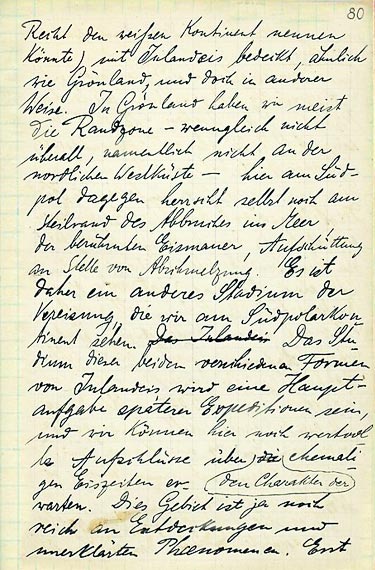 80
Recht den weißen Kontinent nennen
könnte) mit Inlandeis bedeckt, ähnlich
wie Grönland, und doch in anderer
Weise. In Grönland haben wir meist
die Randzone – wenngleich nicht
überall, namentlich nicht an der
nordlichen Westküste – hier am Süd-
pol dagegen herrscht selbst noch am
Steilrand des Abbruches ins Meer
der berühmten Eismauer, Aufschüttung
an Stelle von Abschmelzung. Es ist
daher ein anderes Stadium der
Vereisung, die wir am Südpolarkon
tinent sehen. Das Inlandeis Das Stu-
dium dieser beiden verschiedenen Formen
von Inlandeis wird eine Haupt-
aufgabe späterer Expeditionen sein,
und wir können hier noch wertvol
le Aufschlüsse über die ehemali-
gen Eiszeiten er- den Charakter der
warten. Dies Gebiet ist ja noch
reich an Entdeckungen und
unerklärten Phænomenen. Erst